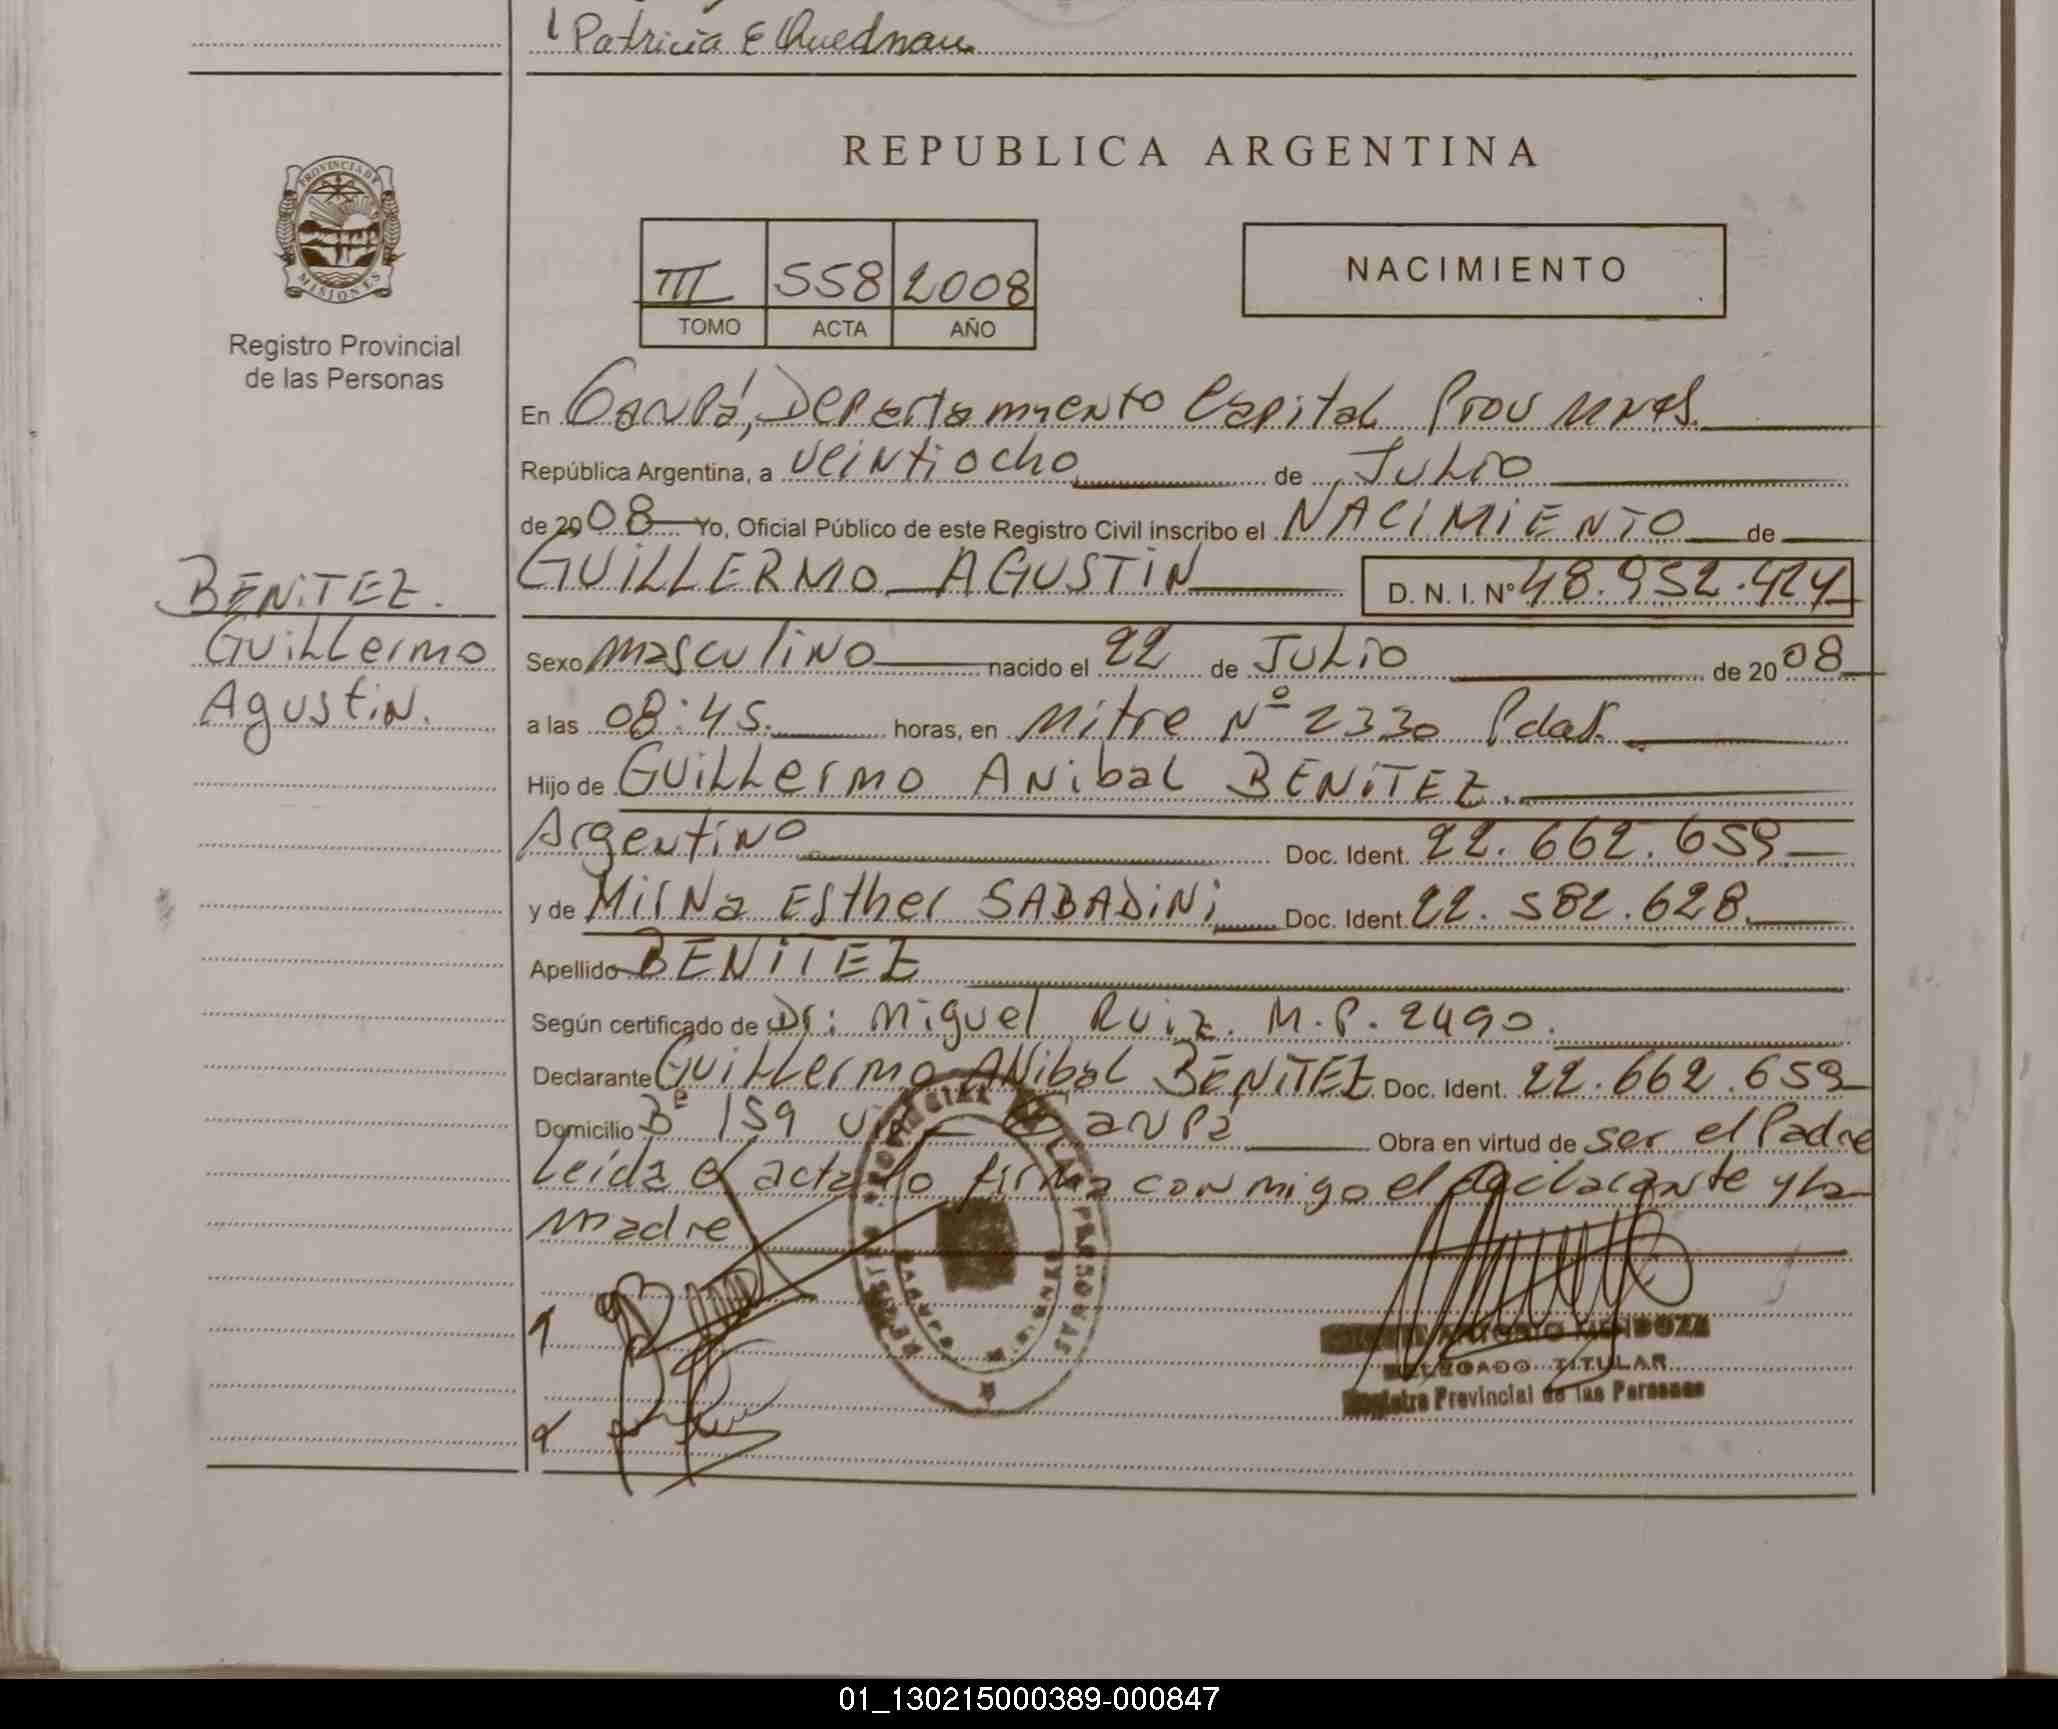 Patricia E Quednau
REPUBLICA ARGENTINA
PROVINCIA DE
MISIONES
III 558 2008
TOMO ACTA AÑO
NACIMIENTO
Registro Provincial
de las Personas
En Garupá, Departamento Capital Prov Mnes.
República Argentina, a veintiocho de Julio
de 2008 Yo, Oficial Público de este Registro Civil inscribo el NACIMIENTO de
BENITEZ.
Guillermo
Agustin.
GUILLERMO AGUSTIN D. N. I. Nº 48.952.424
Sexo masculino nacido el 22 de Julio de 2008
a las 08:45. horas, en Mitre Nº 2330 Pdas.
Hijo de Guillermo Anibal BENITEZ.
Argentino Doc. Ident. 22.662.659
y de Mirna Esther SABADINI Doc. Ident. 22.582.628.
Apellido BENITEZ
Según certificado de Dr: Miguel Ruiz. M.P. 2490.
Declarante Guillermo Anibal BENITEZ Doc. Ident. 22.662.659
Domicilio Bº 159 Garupá Obra en virtud de ser el Padre
Leida el acta lo firma conmigo el declarante y la
madre
REGISTRO PROVINCIAL DE LAS PERSONAS
GARUPA
ANTONIO MENDOZA
DELEGADO TITULAR
Registro Provincial de las Personas
01_130215000389-000847